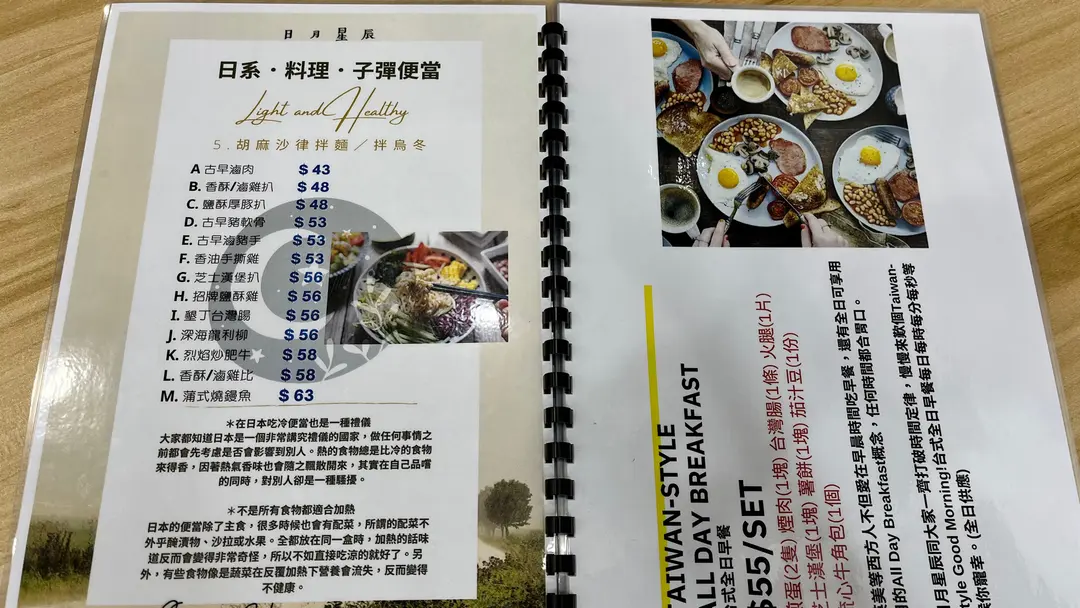 日月星辰
日系・料理・子彈便當
Light and Healthy
5. 胡麻沙律拌麵／拌烏冬
A 古早滷肉 $ 43
B. 香酥/滷雞扒 $ 48
C. 鹽酥厚豚扒 $ 48
D. 古早豬軟骨 $ 53
E. 古早滷豬手 $ 53
F. 香油手撕雞 $ 53
G. 芝士漢堡扒 $ 56
H. 招牌鹽酥雞 $ 56
I. 墾丁台灣腸 $ 56
J. 深海龍利柳 $ 56
K. 烈焰炒肥牛 $ 58
L. 香酥/滷雞比 $ 58
M. 蒲式燒鰻魚 $ 63
＊在日本吃冷便當也是一種禮儀
大家都知道日本是一個非常講究禮儀的國家，做任何事情之
前都會先考慮是否會影響到別人。熱的食物總是比冷的食物
來得香，因著熱氣香味也會隨之飄散開來，其實在自己品嚐
的同時，對別人卻是一種騷擾。
＊不是所有食物都適合加熱
日本的便當除了主食，很多時候也會有配菜，所謂的配菜不
外乎醃漬物、沙拉或水果。全都放在同一盒時，加熱的話味
道反而會變得非常奇怪，所以不如直接吃涼的就好了。另
外，有些食物像是蔬菜在反覆加熱下營養會流失，反而變得
不健康。
TAIWAN-STYLE
ALL DAY BREAKFAST
台式全日早餐
$55/SET
煎蛋(2隻) 煙肉(1塊) 台灣腸(1條) 火腿(1片)
芝士漢堡(1塊) 薯餅(1塊) 茄汁豆(1份)
流心牛角包(1個)
英美等西方人不但愛在早晨時間吃早餐，還有全日可享用
的All Day Breakfast概念，任何時間都合胃口。
日月星辰同大家一齊打破時間定律，慢慢來歎個Taiwan-
style Good Morning!台式全日早餐每日每時每分每秒等
候你寵幸。(全日供應)